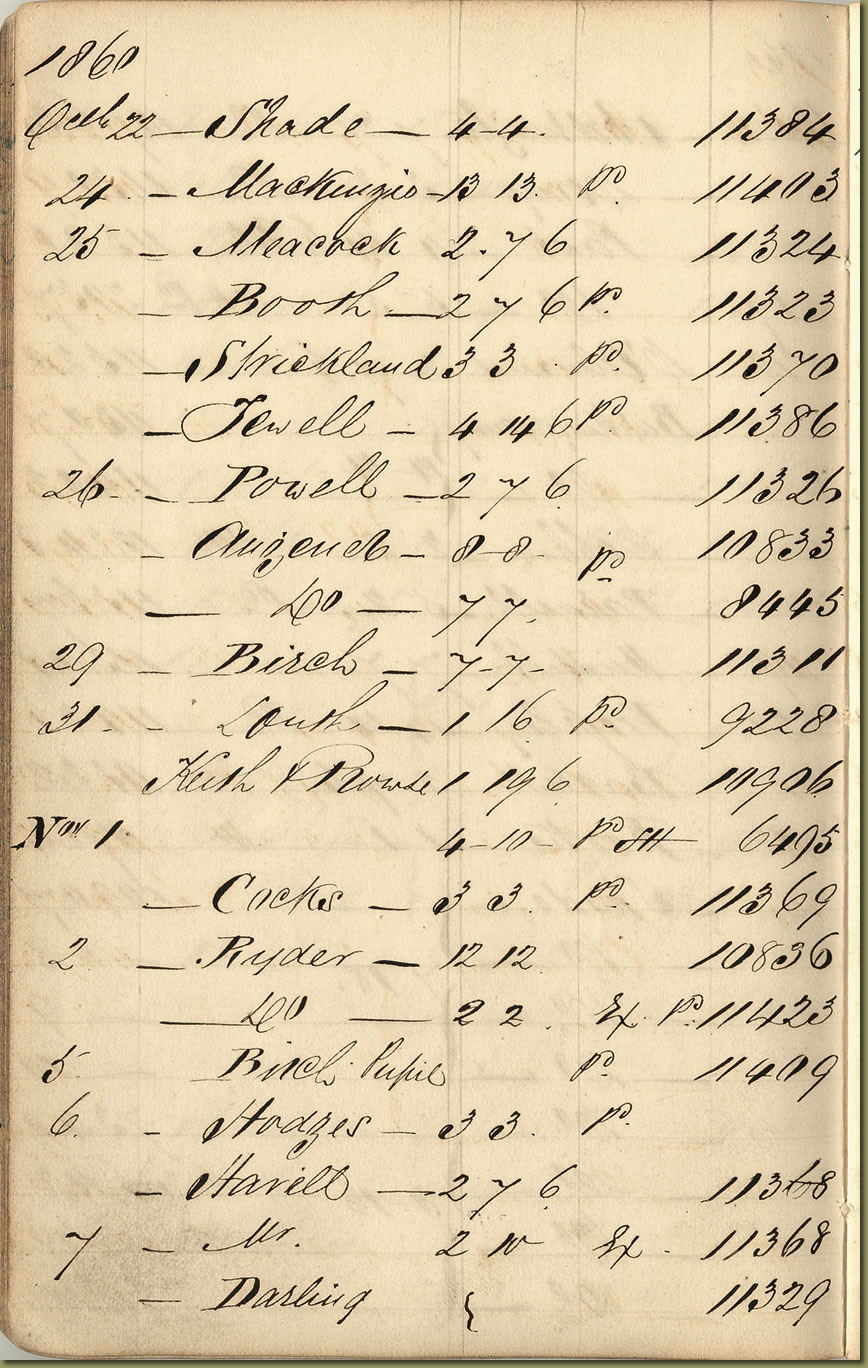 1860
Octr 22 — Shade — 4-4. 11384
24 — Mackenzie - 13 13. pd 11403
25 — Meacock 2.7 6 11324
— Booth — 2 7 6 pd 11323
— Strickland 3 3 . pd. 11370
— Jewell — 4 14 6 pd 11386
26 - — Powell — 2 7 6 11326
— — 8-8- pd 10833
— Do — 7 7. 8445
29 — Birch — 7-7- 11311
31 - - Louth — 1 16 pd. 9228
Keith & Prowse 1 19 6 10906
Nov 1 4-10- pd 6495
— Cocks — 3 3. pd. 11369
2 — Ryder — 12 12 10836
— Do — 2 2 . Ex. pd. 11423
5 Birch Pupil pd. 11409
6. — Hodges — 3 3. pd.
— Havell — 2 7 6 11368
7 — Mr. 2 10 Ex - 11368
— Darling { 11329